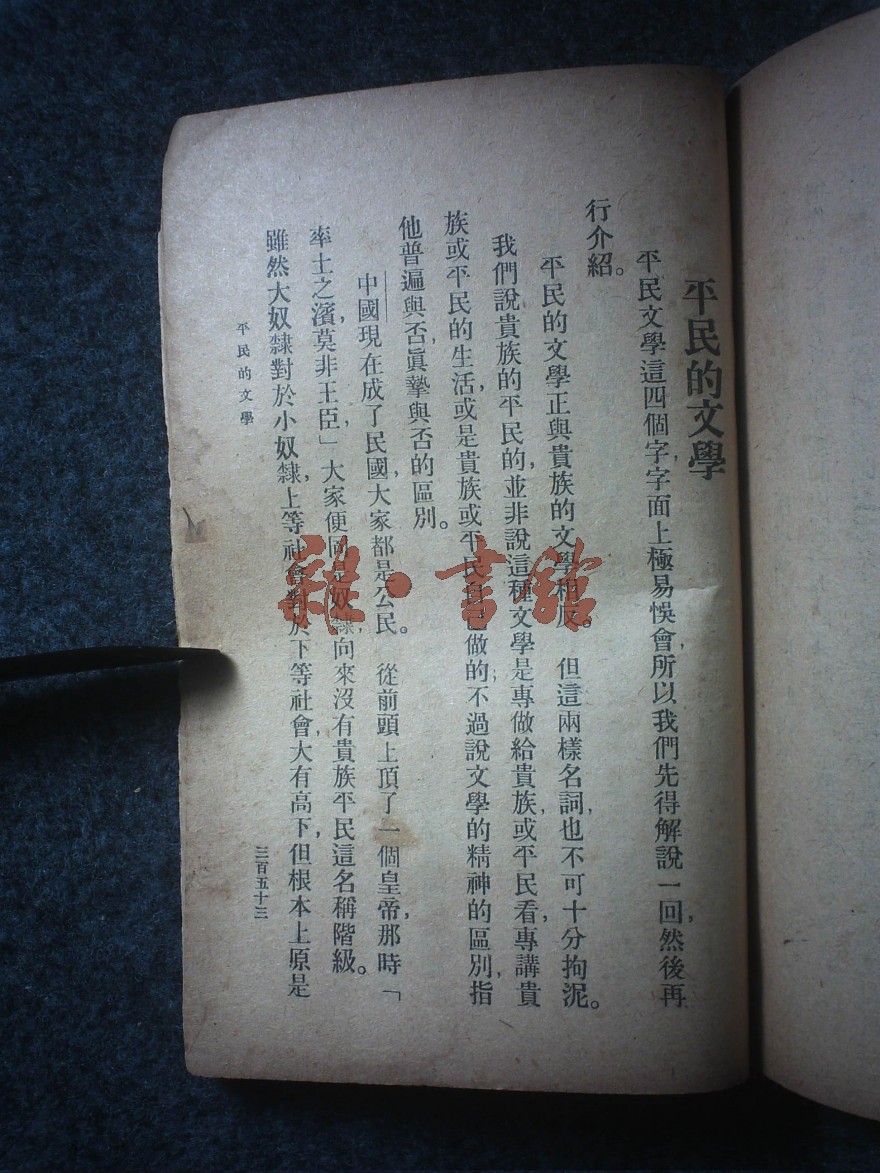 平民的文學
平民文學這四個字,字面上極易悞會,所以我們先得解說一回,然後再
行介紹。
平民的文學正與貴族的文學相反。但這兩樣名詞,也不可十分拘泥。
我們說貴族的平民的,並非說這種文學是專做給貴族,或平民看,專講貴
族或平民的生活,或是貴族或平民自己做的;不過說文學的精神的區別,指
他普遍與否,眞摯與否的區別。
中國現在成了民國,大家都是公民。從前頭上頂了一個皇帝,那時「
率土之濱,莫非王臣」大家便同是奴隸,向來沒有貴族平民這名稱階級。
雖然大奴隸對於小奴隸,上等社會對於下等社會,大有高下,但根本上原是
平民的文學
三百五十三
雜·書館